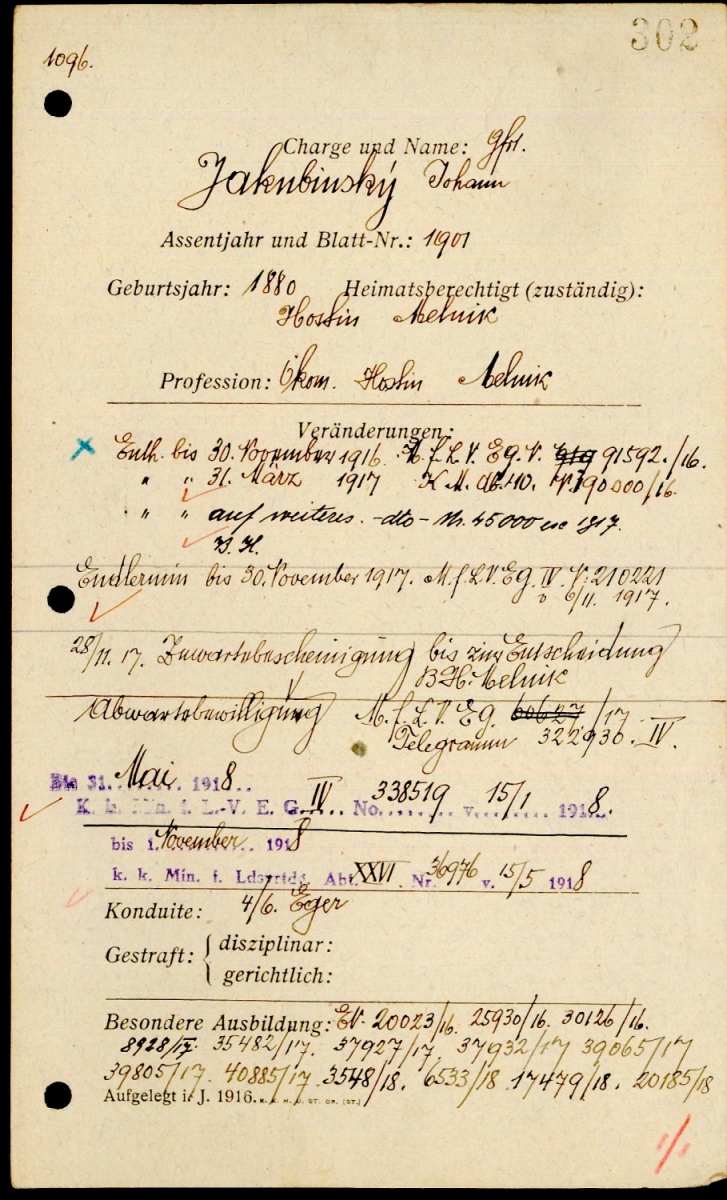 302
1096.
Charge und Name: Gfrt.
Jakubinský Johann
Assentjahr und Blatt-Nr.: 1901
Geburtsjahr: 1880 Heimatsberechtigt (zuständig):
Hostin Melnik
Profession: Ökon. Hostin Melnik
Veränderungen:
Enth. bis 30. November 1916. M. f. L. V. Eg. V. 919 91592./16.
" " 31. März 1917 K M. Ab. 10. N. 190000/16.
" " auf weiteres. - dto - Nr. 45000 ex 1917.
B. H.
Endtermin bis 30. November 1917. M. f. L V. Eg. IV. N: 210221
v 6/11. 1917.
28/11. 17. Zuwartebescheinigung bis zur Entscheidung
BH. Melnik
Abwartebewilligung M. f. L. V. Eg. 60627/17
Telegramm 322930. IV.
Bis 31. Mai 1918.
K. k. Min. f. L.-V. E. G. IV No. 338519 v. 15/1 1918.
bis 1. November 1918
k. k. Min. f. Ldsvrtdg. Abt. XXVI Nr. 36976 v. 15/5 1918
Konduite: 4/6. Eger
Gestraft: disziplinar:
gerichtlich:
Besondere Ausbildung: EV. 20023/16. 25930/16. 30126/16.
8928/17. 35482/17. 37927/17 37932/17 39065/17
39805/17. 40885/17. 3548/18. 6533/18 17479/18. 20185/18
Aufgelegt i. J. 1916.
1/1